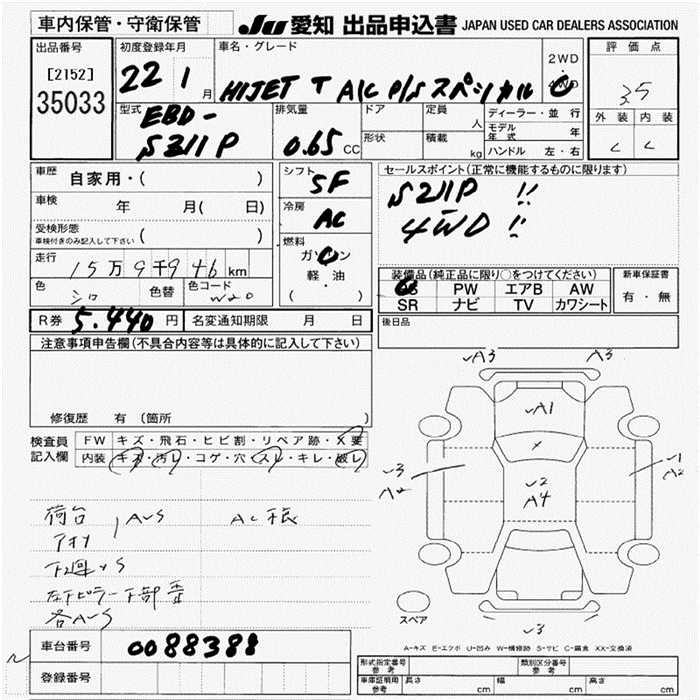 車内保管・守衛保管
JU 愛知 出品申込書 JAPAN USED CAR DEALERS ASSOCIATION
出品番号
[2152]
35033
初度登録年月
22 1 月
車名・グレード
HIJET T A/C P/S スペシャル
2WD
4WD
評価点
3.5
外装 内装
C C
型式
EBD-
S211P
排気量
0.65 CC
ドア
形状
定員 人
積載 kg
ディーラー・並行
モデル年式 年
ハンドル 左・右
車歴 自家用・( )
車検 年 月( 日)
受検形態
車検付きのみ記入して下さい ( )
走行 15万9千946 km
色 シロ 色替 色コード W20
シフト
5F
冷房
AC
燃料
ガソリン
軽・油
( )
セールスポイント(正常に機能するものに限ります)
S211P !!
4WD !!
装備品(純正品に限り○をつけてください)
PS PW エアB AW
SR ナビ TV カワシート
新車保証書
有・無
R券 5.440 円 名変通知期限 月 日
後日品
注意事項申告欄(不具合内容等は具体的に記入して下さい)
修復歴 有 (箇所
検査員記入欄
FW キズ・飛石・ヒビ割・リペア跡・X要
内装 キズ・汚レ・コゲ・穴・スレ・キレ・破レ
荷台 AUS AC
アオリ
下廻 S
左 ピラー下部
各AUS
A3 A3
A1
X
3
A2
2
A4
1
A2
3
スペア
A-キズ E-エクボ U-凹み W-補修跡 S-サビ C-腐食 XX-交換済
車台番号 0088388
登録番号
形式指定番号 参考
類別区分番号 参考
車庫証明用 参考 長さ cm 幅 cm 高さ cm